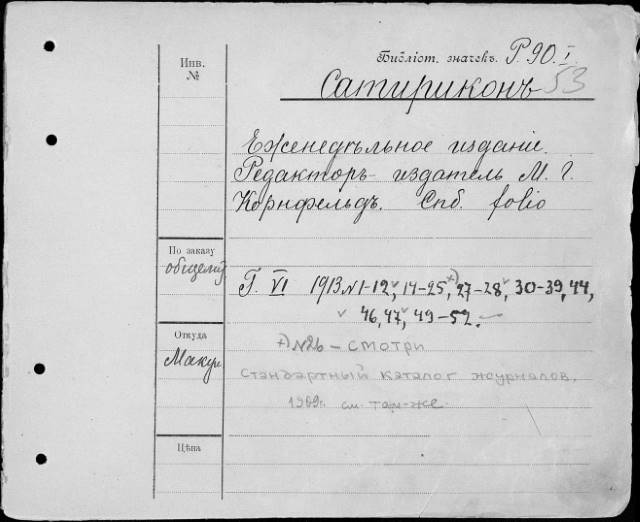 Инв.
№
Библіот. значекъ. Р. 90. I.
Сатириконъ 53
Еженедѣльное изданіе.
Редакторъ-издатель М. Г.
Корнфельдъ. Спб. folio
По заказу
Г. VI 1913 №1-12, 14-25, +) 27-28, 30-39, 44,
46, 47, 49-52.
Откуда
+) №26 - смотри
стандартный каталог журналов.
1909г. см. там-же.
Цѣна